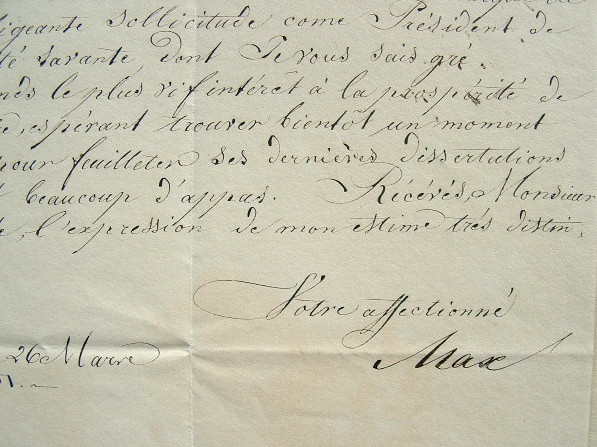 igeante sollicitude come Président de
té savante, dont Je vous sais gré.
nds le plus vif intérêt à la prospérité de
espérant trouver bientôt un moment
pour feuilleter ses dernières dissertations
beaucoup d'appas. Récévés, Monsieur
e, l'expression de mon estime trés distin.
Votre affectionné
Max
26 Marre